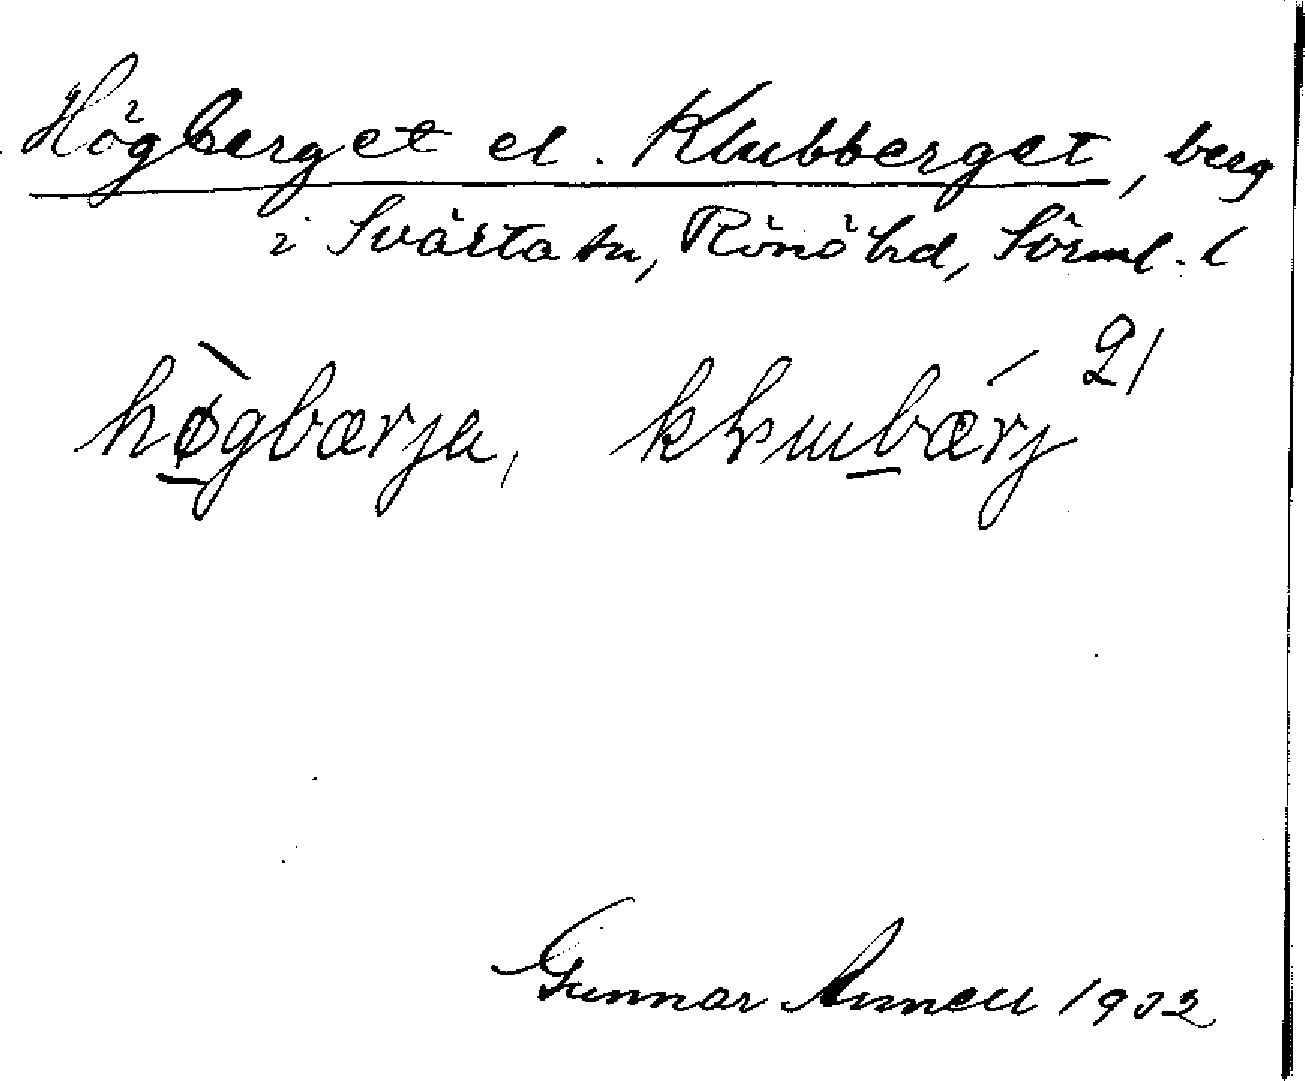 Högberget el. Klubberget, berg
i Svärta sn, Rönö hd, Sörml. l
hø̀gbærja, klubærj 21
Gunnar Annell 1932